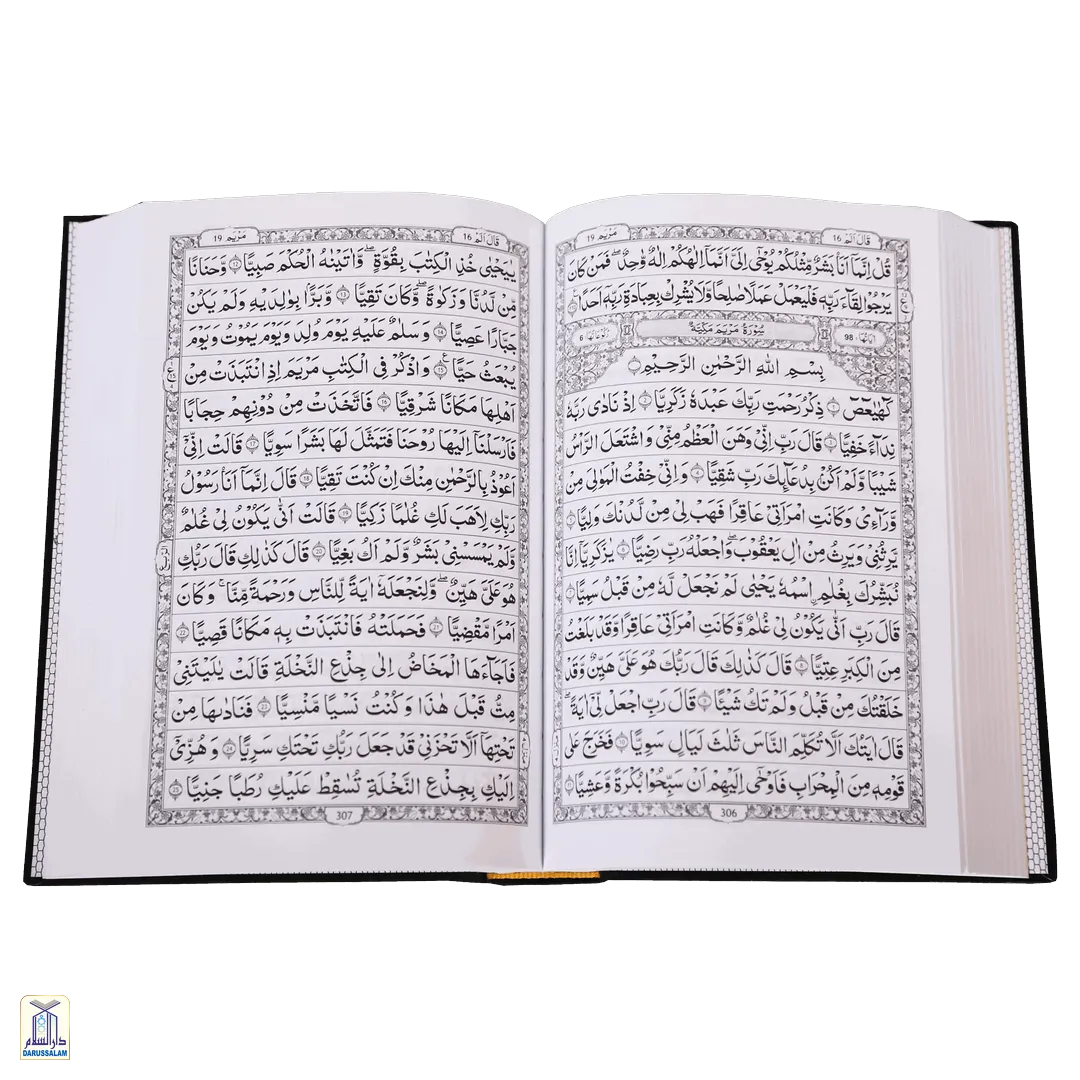 قَالَ اَلَمْ 16
مَرْيَم 19
قُلْ اِنَّمَاۤ اَنَا۠ بَشَرٌ مِّثْلُكُمْ يُوْحٰۤى اِلَىَّ اَنَّمَاۤ اِلٰهُكُمْ اِلٰهٌ وَّاحِدٌ ۚ فَمَنْ كَانَ
يَرْجُوْا لِقَآءَ رَبِّهٖ فَلْيَعْمَلْ عَمَلًا صَالِحًا وَّلَا يُشْرِكْ بِعِبَادَةِ رَبِّهٖۤ اَحَدًا
اٰيَاتُهَا 98
سُوْرَةُ مَرْيَمَ مَكِّيَّةٌ
رُكُوْعَاتُهَا 6
بِسْمِ اللّٰهِ الرَّحْمٰنِ الرَّحِيْمِ
كٓهٰيٰعٓصٓ ۝١ ذِكْرُ رَحْمَتِ رَبِّكَ عَبْدَهٗ زَكَرِيَّا ۝٢ اِذْ نَادٰى رَبَّهٗ
نِدَآءً خَفِيًّا ۝٣ قَالَ رَبِّ اِنِّىْ وَهَنَ الْعَظْمُ مِنِّىْ وَاشْتَعَلَ الرَّاْسُ
شَيْبًا وَّلَمْ اَكُنْۢ بِدُعَآئِكَ رَبِّ شَقِيًّا ۝٤ وَاِنِّىْ خِفْتُ الْمَوَالِىَ مِنْ
وَّرَآءِىْ وَكَانَتِ امْرَاَتِىْ عَاقِرًا فَهَبْ لِىْ مِنْ لَّدُنْكَ وَلِيًّا ۝٥
يَّرِثُنِىْ وَيَرِثُ مِنْ اٰلِ يَعْقُوْبَ ۖ وَاجْعَلْهُ رَبِّ رَضِيًّا ۝٦ يٰزَكَرِيَّاۤ اِنَّا
نُبَشِّرُكَ بِغُلٰمِ ۨاسْمُهٗ يَحْيٰى لَمْ نَجْعَلْ لَّهٗ مِنْ قَبْلُ سَمِيًّا ۝٧
قَالَ رَبِّ اَنّٰى يَكُوْنُ لِىْ غُلٰمٌ وَّكَانَتِ امْرَاَتِىْ عَاقِرًا وَّقَدْ بَلَغْتُ
مِنَ الْكِبَرِ عِتِيًّا ۝٨ قَالَ كَذٰلِكَ قَالَ رَبُّكَ هُوَ عَلَىَّ هَيِّنٌ وَّقَدْ
خَلَقْتُكَ مِنْ قَبْلُ وَلَمْ تَكُ شَيْئًا ۝٩ قَالَ رَبِّ اجْعَلْ لِّىْۤ اٰيَةً ۚ
قَالَ اٰيَتُكَ اَلَّا تُكَلِّمَ النَّاسَ ثَلٰثَ لَيَالٍ سَوِيًّا ۝١٠ فَخَرَجَ عَلٰى
قَوْمِهٖ مِنَ الْمِحْرَابِ فَاَوْحٰۤى اِلَيْهِمْ اَنْ سَبِّحُوْا بُكْرَةً وَّعَشِيًّا ۝١١
306
قَالَ اَلَمْ 16
مَرْيَم 19
يٰيَحْيٰى خُذِ الْكِتٰبَ بِقُوَّةٍ ۖ وَاٰتَيْنٰهُ الْحُكْمَ صَبِيًّا ۝١٢ وَّحَنَانًا
مِّنْ لَّدُنَّا وَزَكٰوةً ۖ وَكَانَ تَقِيًّا ۝١٣ وَّبَرًّۢا بِوَالِدَيْهِ وَلَمْ يَكُنْ
جَبَّارًا عَصِيًّا ۝١٤ وَسَلٰمٌ عَلَيْهِ يَوْمَ وُلِدَ وَيَوْمَ يَمُوْتُ وَيَوْمَ
يُبْعَثُ حَيًّا ۝١٥ وَاذْكُرْ فِى الْكِتٰبِ مَرْيَمَ اِذِ انْتَبَذَتْ مِنْ
اَهْلِهَا مَكَانًا شَرْقِيًّا ۝١٦ فَاتَّخَذَتْ مِنْ دُوْنِهِمْ حِجَابًا
فَاَرْسَلْنَاۤ اِلَيْهَا رُوْحَنَا فَتَمَثَّلَ لَهَا بَشَرًا سَوِيًّا ۝١٧ قَالَتْ اِنِّىْۤ
اَعُوْذُ بِالرَّحْمٰنِ مِنْكَ اِنْ كُنْتَ تَقِيًّا ۝١٨ قَالَ اِنَّمَاۤ اَنَا۠ رَسُوْلُ
رَبِّكِ لِاَهَبَ لَكِ غُلٰمًا زَكِيًّا ۝١٩ قَالَتْ اَنّٰى يَكُوْنُ لِىْ غُلٰمٌ
وَّلَمْ يَمْسَسْنِىْ بَشَرٌ وَّلَمْ اَكُ بَغِيًّا ۝٢٠ قَالَ كَذٰلِكِ قَالَ رَبُّكِ
هُوَ عَلَىَّ هَيِّنٌ ۖ وَلِنَجْعَلَهٗۤ اٰيَةً لِّلنَّاسِ وَرَحْمَةً مِّنَّا ۚ وَكَانَ
اَمْرًا مَّقْضِيًّا ۝٢١ فَحَمَلَتْهُ فَانْتَبَذَتْ بِهٖ مَكَانًا قَصِيًّا ۝٢٢
فَاَجَآءَهَا الْمَخَاضُ اِلٰى جِذْعِ النَّخْلَةِ قَالَتْ يٰلَيْتَنِىْ
مِتُّ قَبْلَ هٰذَا وَكُنْتُ نَسْيًا مَّنْسِيًّا ۝٢٣ فَنَادٰىهَا مِنْ
تَحْتِهَاۤ اَلَّا تَحْزَنِىْ قَدْ جَعَلَ رَبُّكِ تَحْتَكِ سَرِيًّا ۝٢٤ وَهُزِّىْۤ
اِلَيْكِ بِجِذْعِ النَّخْلَةِ تُسٰقِطْ عَلَيْكِ رُطَبًا جَنِيًّا ۝٢٥
307
دار السلام
DARUSSALAM